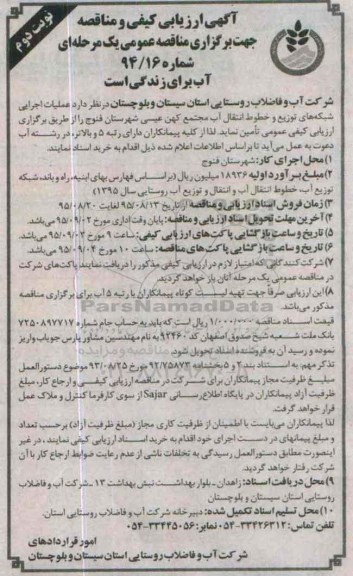 نوبت دوم
آگهی ارزیابی کیفی و مناقصه
جهت برگزاری مناقصه عمومی یک مرحله‌ای
شماره ۹۴/۱۶
آب برای زندگی است
شرکت آب و فاضلاب روستایی استان سیستان و بلوچستان در نظر دارد عملیات اجرایی
شبکه‌های توزیع و خطوط انتقال آب مجتمع کهن عیسی شهرستان فنوج را از طریق برگزاری
ارزیابی کیفی عمومی تأمین نماید. لذا از کلیه پیمانکاران دارای رتبه ۵ و بالاتر، در رشته آب
دعوت به عمل می‌آید تا براساس اطلاعات اعلام شده ذیل اقدام به خرید اسناد نمایند.
۱) محل اجرای کار: شهرستان فنوج
۲) مبلغ برآورد اولیه ۱۸۹۳۶ میلیون ریال (براساس فهارس بهای ابنیه، راه و باند، شبکه
توزیع آب، خطوط انتقال آب و انتقال و توزیع آب روستایی سال ۱۳۹۵)
۳) زمان فروش اسناد ارزیابی و مناقصه: از تاریخ ۹۵/۰۸/۱۳ لغایت ۹۵/۰۸/۲۰
۴) آخرین مهلت تحویل اسناد ارزیابی و مناقصه: پایان وقت اداری مورخ ۹۵/۰۹/۰۲ می‌باشد.
۵) تاریخ و ساعت بازگشایی پاکت‌های ارزیابی کیفی: ساعت ۹ مورخ ۹۵/۰۹/۰۳ می‌باشد.
۶) تاریخ و ساعت بازگشایی پاکت‌های مناقصه: ساعت ۱۰ مورخ ۹۵/۰۹/۰۳ می‌باشد.
۷) شرکت کنندگانی که امتیاز لازم در ارزیابی کیفی مذکور را دریافت نمایند پاکت‌های شرکت
در مناقصه عمومی یک مرحله‌ای آنان باز خواهد گردید.
۸) این ارزیابی صرفاً جهت تهیه لیست کوتاه پیمانکاران با رتبه ۵ آب برای برگزاری مناقصه
مذکور می‌باشد.
قیمت اسناد مناقصه ۱/۰۰۰/۰۰۰ ریال است که باید به حساب جام شماره ۷۲۵۰۸۹۷۷۱۷
بانک ملت شعبه شیخ صدوق اصفهان کد ۹۲۴۶۰ به نام مهندسین مشاور پارس جویاب واریز
نموده و رسید آن به فروشنده اسناد تحویل شود.
تذکر مهم: به استناد بند ۲ و ۵ بخشنامه ۹۲/۷۵۸۷۳ مورخ ۹۳/۰۸/۲۵ موضوع دستورالعمل
مبلغ ظرفیت مجاز پیمانکاران برای شرکت در مناقصه ارزیابی کیفی و ارجاع کار، مبلغ
ظرفیت آزاد پیمانکاران در پایگاه اطلاع‌رسانی Sajar از سوی کارفرما کنترل و ملاک عمل
قرار خواهد گرفت.
لذا پیمانکاران می‌بایست با اطمینان از ظرفیت کاری مجاز (مبلغ ظرفیت آزاد) برحسب تعداد
و مبلغ پیمانهای در دست اجرای خود اقدام به خرید اسناد ارزیابی کیفی نمایند، در غیر
اینصورت مطابق دستورالعمل رسیدگی به تخلفات ناشی از عدم رعایت ضوابط ارجاع کار با آن
شرکت رفتار خواهد گردید.
۹) محل دریافت اسناد: زاهدان - بلوار بهداشت نبش بهداشت ۱۳ - شرکت آب و فاضلاب
روستایی استان سیستان و بلوچستان
۱۰) محل تسلیم اسناد تکمیل شده: دبیرخانه شرکت آب و فاضلاب روستایی استان.
تلفن تماس: ۳۳۴۲۶۳۱۲-۰۵۴ نمابر: ۳۳۴۴۵۰۵۶-۰۵۴
امور قراردادهای
شرکت آب و فاضلاب روستایی استان سیستان و بلوچستان
ParsNamadData